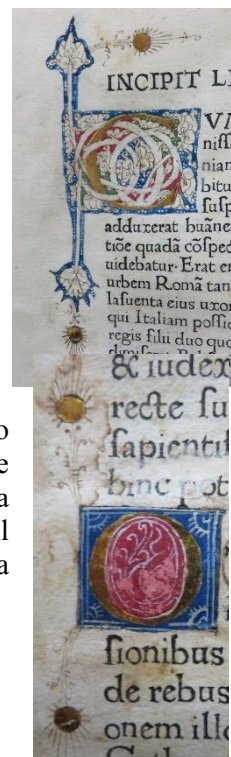 INCIPIT LI
VN
niſſ
nian
bitu
ſuſp
adduxerat huāne
tiōe quadā cōſped
uidebatur· Erat en
urbem Romā tan
laſuenta eius uxor
qui Italiam poſſid
regis filii duo quo
o
e
a
l
a
& iudex
recte ſu
ſapientiſ
hinc pot
O
ſionibus
de rebus
onem illo